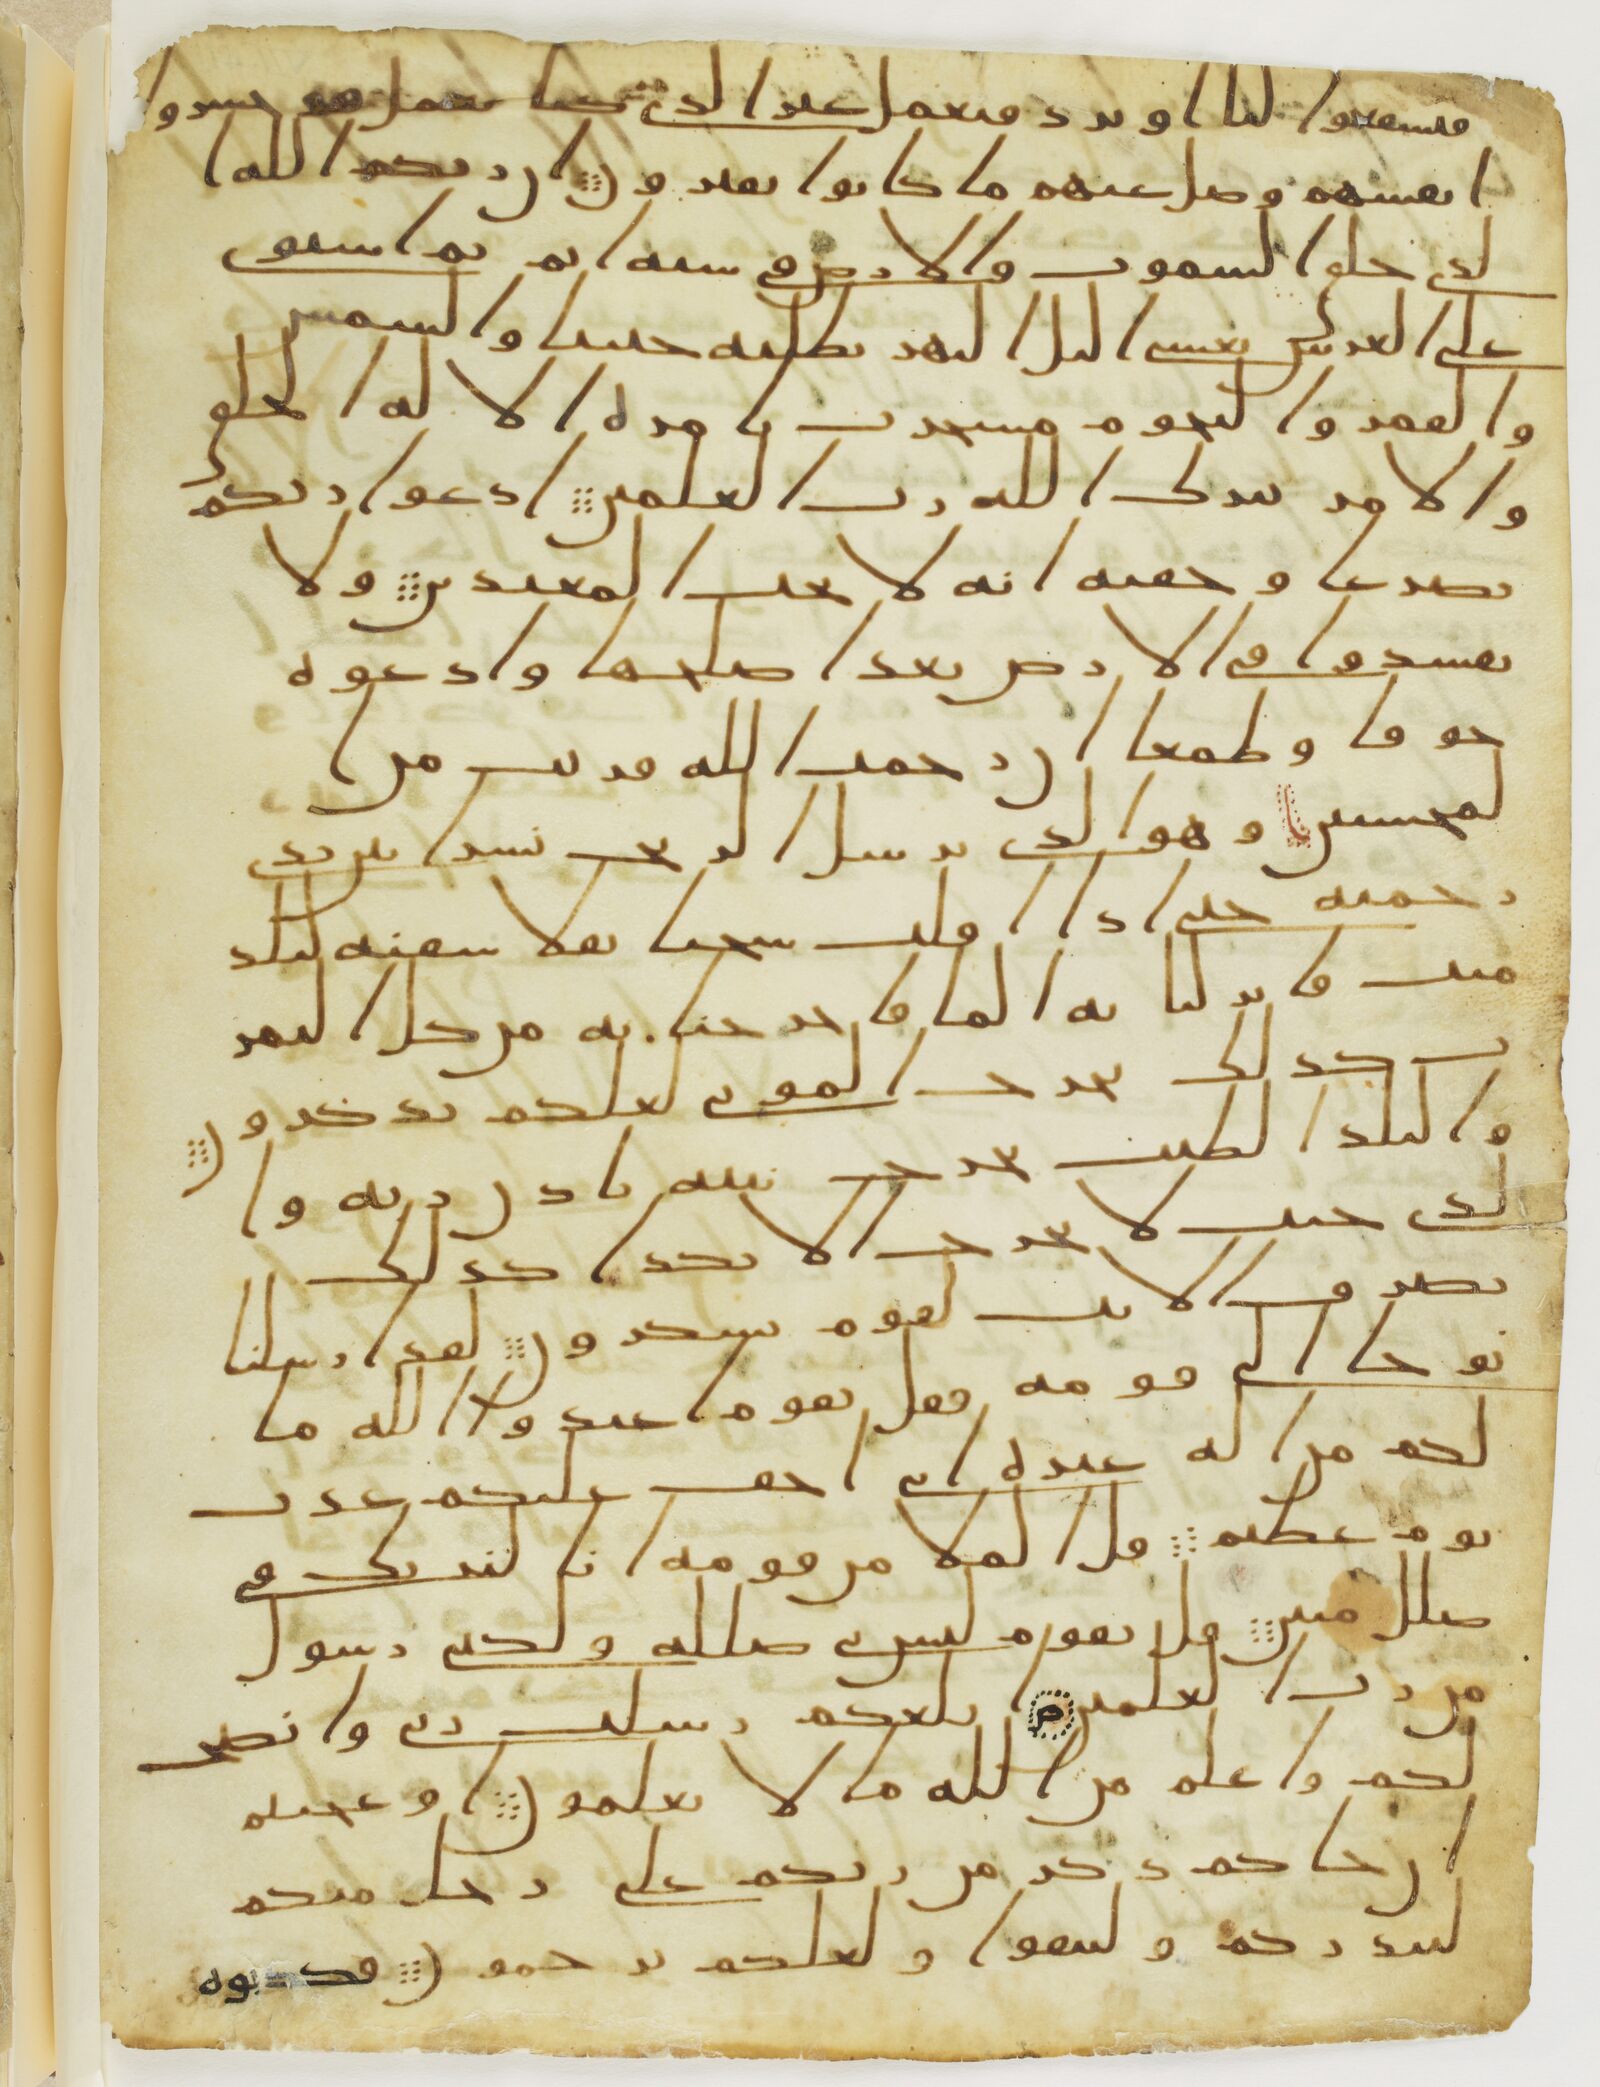 فيشفعوا لنا او نرد فنعمل غير الذى كنا نعمل قد خسروا
انفسهم وضل عنهم ما كانوا يفترون ان ربكم الله ا
لذى خلق السموت والارض فى ستة ايم ثم استوى
على العرش يغشى اليل النهر يطلبه حثيثا والشمس
والقمر والنجوم مسخرت بامره الا له الخلق
والامر تبرك الله رب العلمين ادعوا ربكم
تضرعا وخفية انه لا يحب المعتدين ولا
تفسدوا فى الارض بعد اصلحها وادعوه
خوفا وطمعا ان رحمت الله قريب من ا
لمحسنين وهو الذى يرسل الريح نشرا بين يدى
رحمته حتى اذا اقلت سحبا ثقلا سقنه لبلد
ميت فانزلنا به الما فاخرجنا به من كل الثمر
ت كذلك نخرج الموتى لعلكم تذكرون
والبلد الطيب يخرج نبته باذن ربه وا
لذى خبث لا يخرج الا نكدا كذلك
نصرف الايت لقوم يشكرون لقد ارسلنا
نوحا الى قومه فقل يقوم اعبدوا الله ما
لكم من اله غيره انى اخف عليكم عذب
يوم عظيم قل الملا من قومه انا لنريك فى
ضلل مبين قل يقوم ليس بى ضللة ولكنى رسول
من رب العلمين ابلغكم رسلت ربى وانصح
لكم واعلم من الله ما لا تعلمون اوعجبتم
ان جاكم ذكر من ربكم على رجل منكم
لينذركم ولتتقوا ولعلكم ترحمون فكذبوه